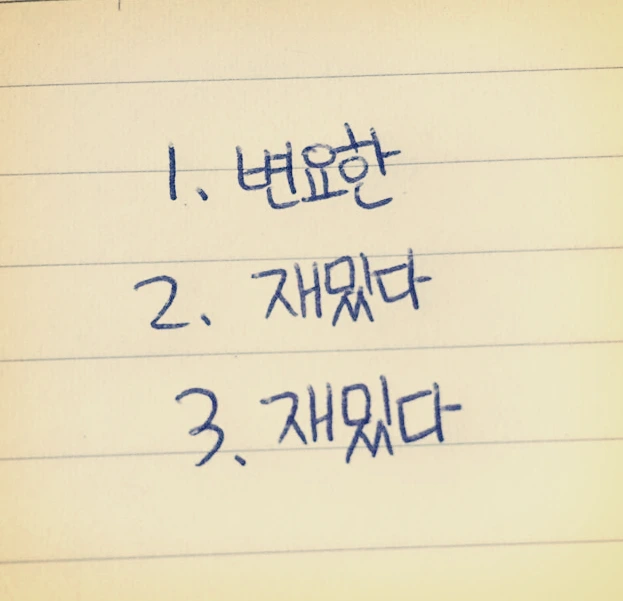 1. 변요한
2. 재밌다
3. 재밌다